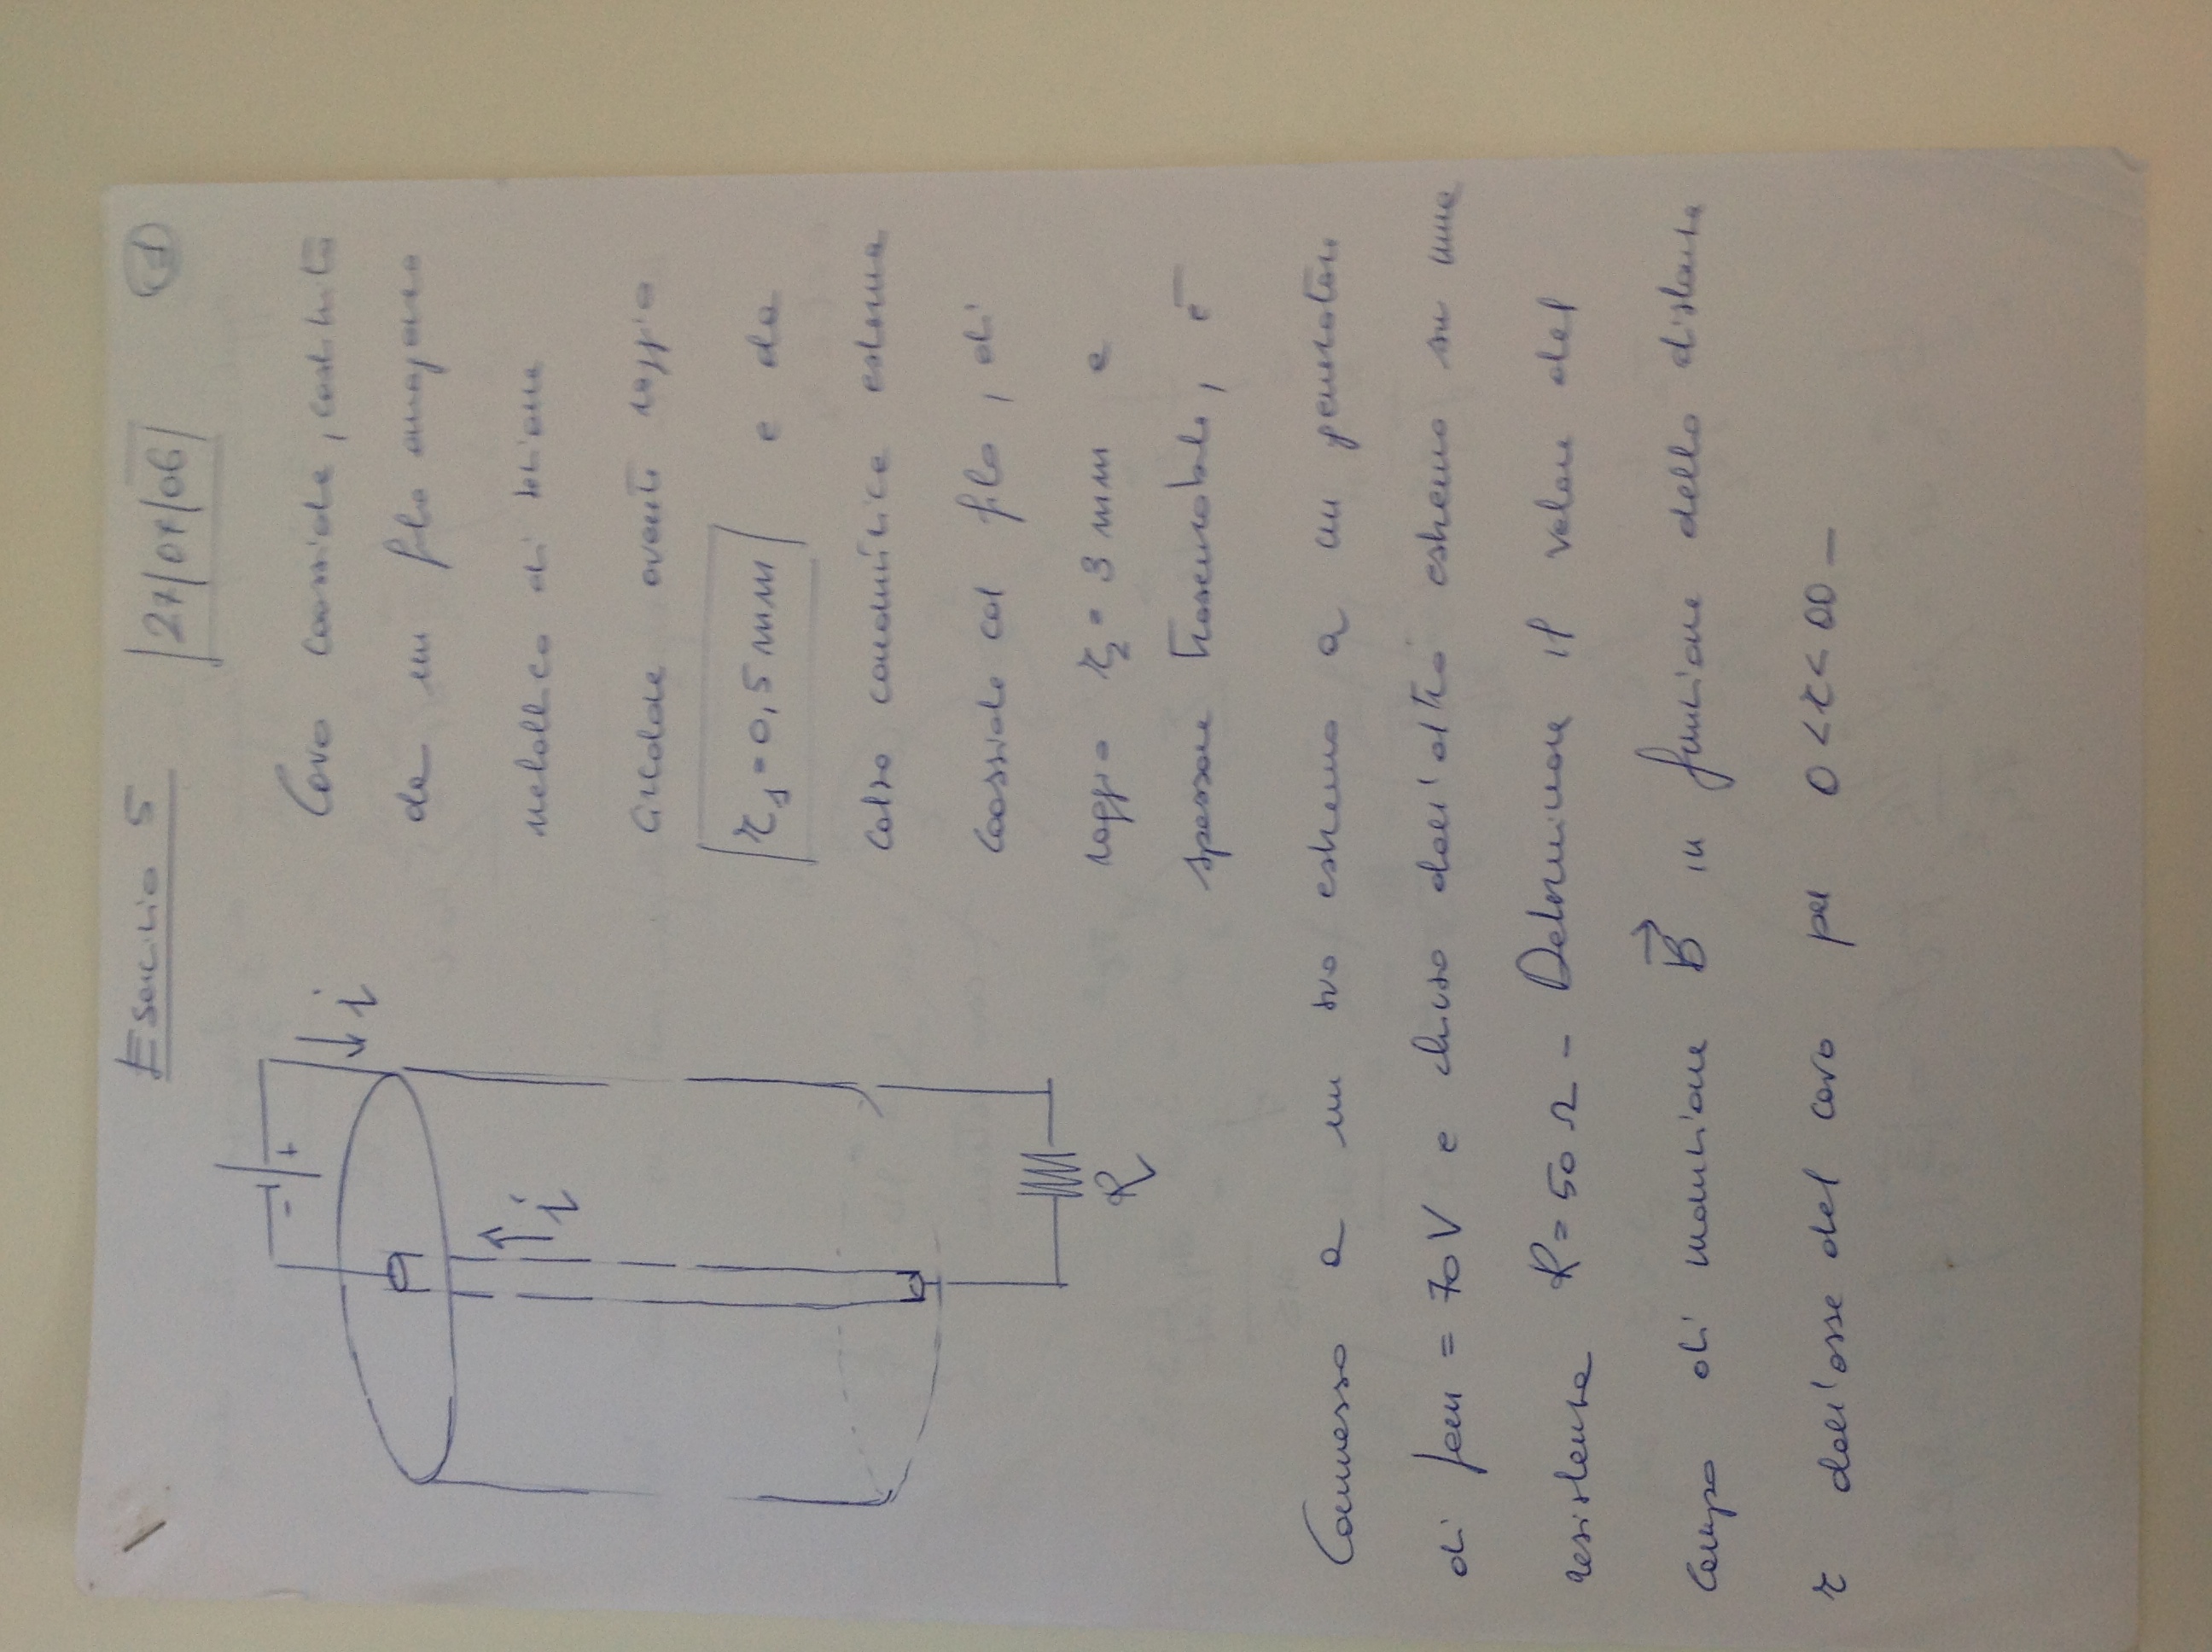 Esercizio 5
|27/07/06|
1
- +
i
i
R
Cavo coassiale, costituito
da un filo omogeneo
metallico di sezione
circolare avente raggio
r1 = 0,5 mm e da
calza conduttrice esterna
coassiale col filo, di
raggio r2 = 3 mm e
spessore trascurabile, è
Connesso a un suo estremo a un generatore
di fem = 70 V e chiuso dall'altro estremo su una
resistenza R = 50 Ω - Determinare il valore del
campo di induzione B⃗ in funzione della distanza
r dall'asse del cavo per 0 < r < ∞ -